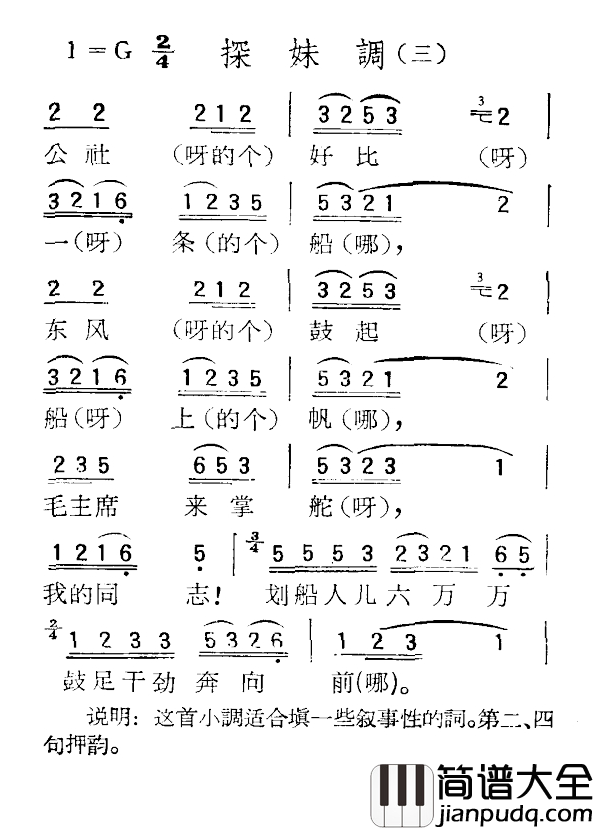 1=G 2/4 探妹調(三)
2 2 2 1 2 | 3 2 5 3 3 2 |
公社 (呀的个) 好比 (呀)
3 2 1 6 1 2 3 5 | 5 3 2 1 2 |
一(呀) 条(的个) 船(哪),
2 2 2 1 2 | 3 2 5 3 3 2 |
东风 (呀的个) 鼓起 (呀)
3 2 1 6 1 2 3 5 | 5 3 2 1 2 |
船(呀) 上(的个) 帆(哪),
2 3 5 6 5 3 | 5 3 2 3 1 |
毛主席 来掌 舵(呀),
1 2 1 6 5 | 3/4 5 5 5 3 2 3 2 1 6 5 |
我的同 志! 划船人儿六万万
2/4 1 2 3 3 5 3 2 6 | 1 2 3 1 |
鼓足干劲奔向 前(哪)。
说明: 这首小調适合塡一些叙事性的詞。第二、四
句押韵。
简谱大全
jianpudq.com